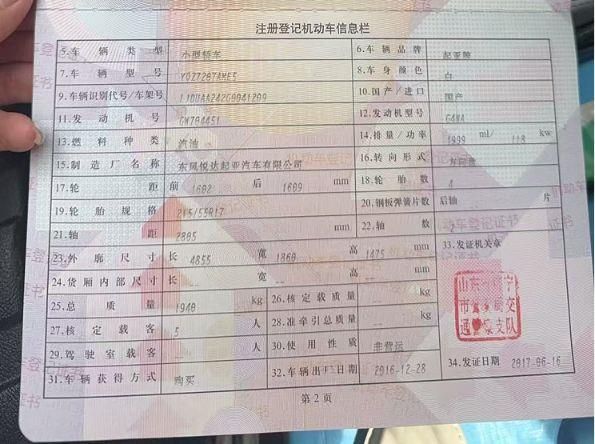 注册登记机动车信息栏
5.车辆类型 小型轿车 6.车辆品牌 起亚牌
7.车辆型号 YQZ7207AME5 8.车身颜色 白
9.车辆识别代号/车架号 10.国产/进口 国产
11.发动机号 GW794451 12.发动机型号 G4NA
13.燃料种类 汽油 14.排量/功率 1999 ml/ 118 kw
15.制造厂名称 东风悦达起亚汽车有限公司 16.转向形式 方向盘
17.轮距 前 1602 后 1609 mm 18.轮胎数 4
19.轮胎规格 215/55R17 20.钢板弹簧片数 后轴 片
21.轴距 2805 mm 22.轴数
23.外廓尺寸 长 4855 宽 1860 高 1475 mm 33.发证机关章
24.货厢内部尺寸 长 -- 宽 -- 高 -- mm
25.总质量 1940 kg 26.核定载质量 -- kg
27.核定载客 5 人 28.准牵引总质量 -- kg
29.驾驶室载客 -- 人 30.使用性质 非营运
31.车辆获得方式 购买 32.车辆出厂日期 2016-12-28 34.发证日期 2017-06-16
山东 宁
市 交
通 支队
第2页